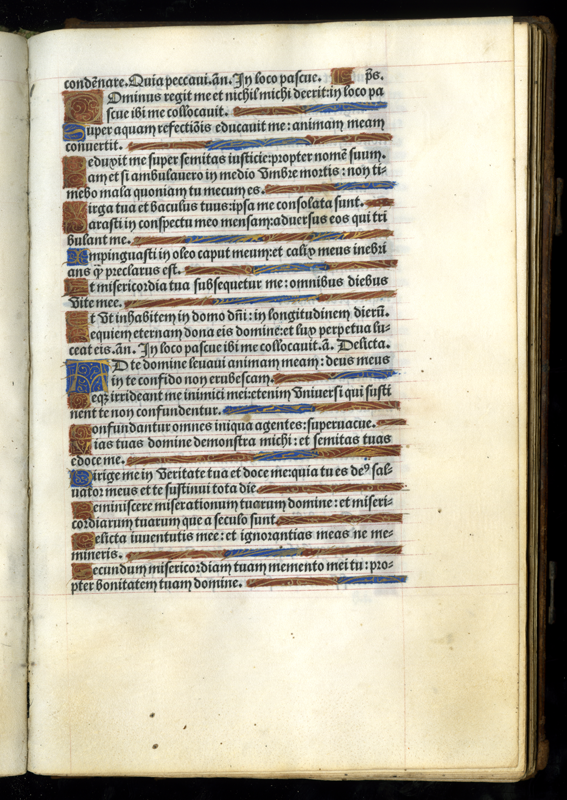 condēnare. Quia peccaui. añ. In loco pascue. ps̄.
Dominus regit me et nichil michi deerit: in loco pa
scue ibi me collocauit.
Super aquam refectiōis educauit me: animam meam
conuertit.
Reduxit me super semitas iusticie: propter nomē suum.
Nam et si ambulauero in medio vmbre mortis: non ti-
mebo mala quoniam tu mecum es.
Virga tua et baculus tuus: ipsa me consolata sunt.
Parasti in conspectu meo mensam: aduersus eos qui tri
bulant me.
Impinguasti in oleo caput meum: et calix meus inebri
ans q̄ preclarus est.
Et misericordia tua subsequetur me: omnibus diebus
vite mee.
Et vt inhabitem in domo dñi: in longitudinem dierū.
Requiem eternam dona eis domine: et lux perpetua lu-
ceat eis. añ. In loco pascue ibi me collocauit. ā. Delicta.
AD te domine leuaui animam meam: deus meus
in te confido non erubescam.
Neqꝫ irrideant me inimici mei: etenim vniuersi qui susti
nent te non confundentur.
Confundantur omnes iniqua agentes: superuacue.
Vias tuas domine demonstra michi: et semitas tuas
edoce me.
Dirige me in veritate tua et doce me: quia tu es deꝰ sal-
uator meus et te sustinui tota die
Reminiscere miserationum tuarum domine: et miseri-
cordiarum tuarum que a seculo sunt.
Delicta iuuentutis mee: et ignorantias meas ne me-
mineris.
Secundum misericordiam tuam memento mei tu: pro-
pter bonitatem tuam domine.